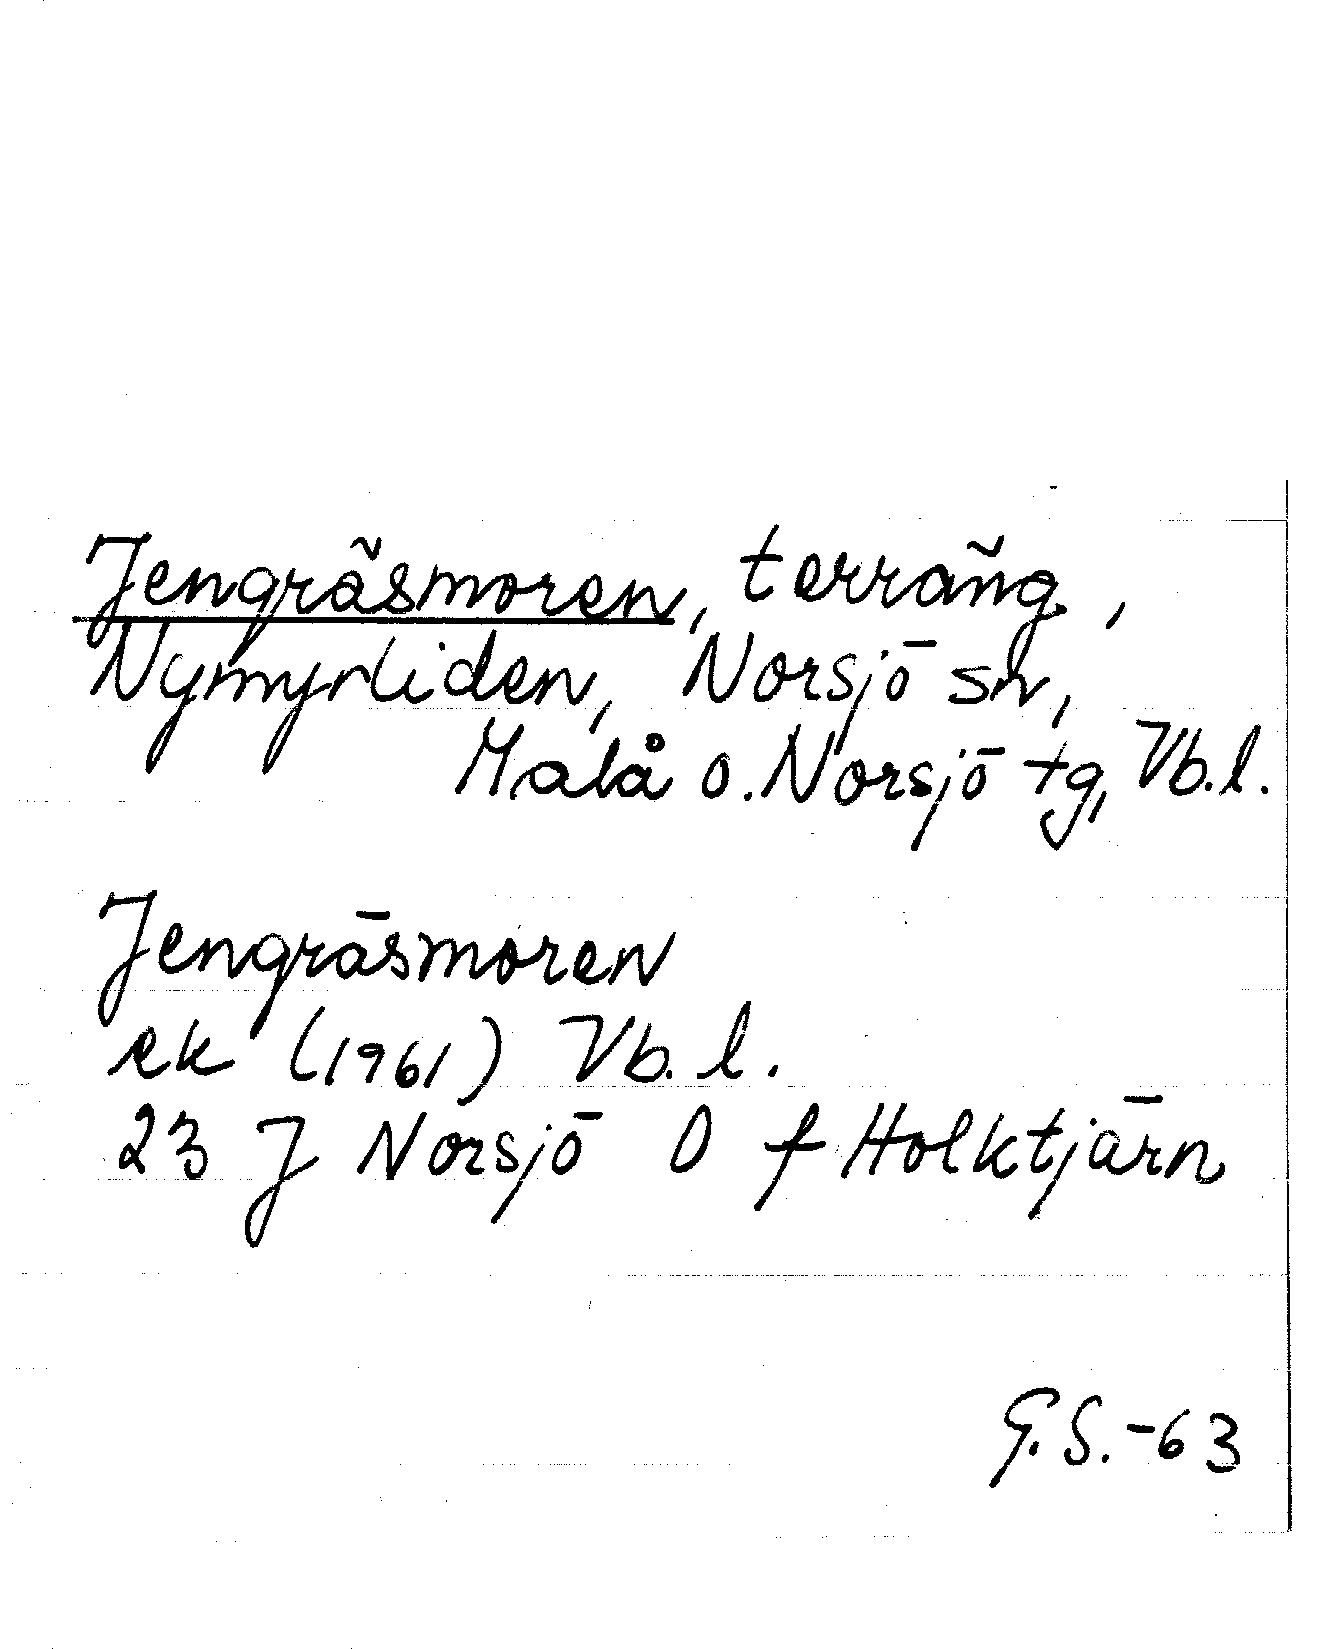 Jengräsmoren, terräng,
Nymyrliden, Norsjö sn,
Malå o. Norsjö tg, Vb.l.
Jengräsmoren
ek (1961) Vb. l.
23 J Norsjö O f Holktjärn
G.S.-63